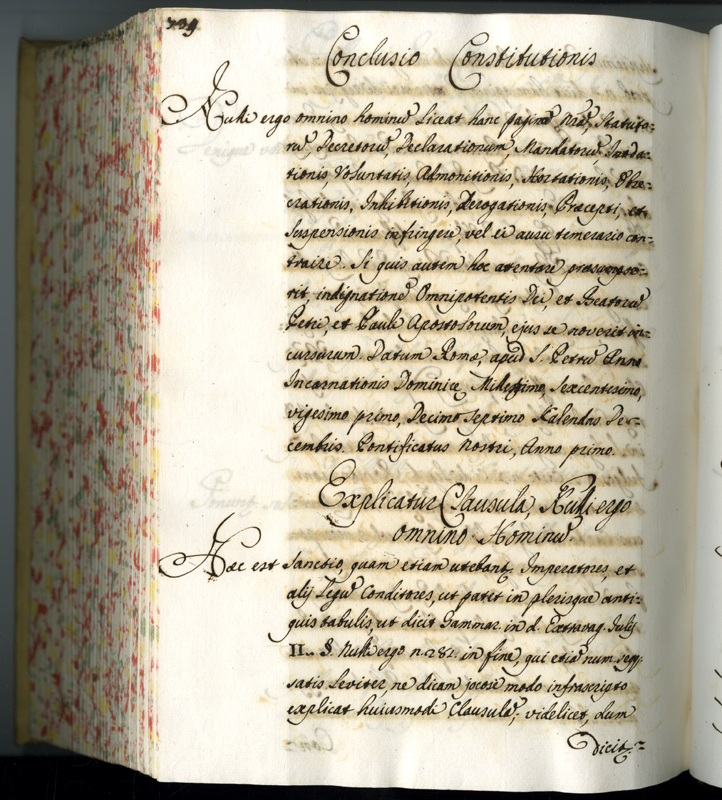 739
Conclusio Constitutionis
Nulli ergo omnino hominũ liceat hanc paginã nrã, Statuto-
rũ, Decretorũ, Declarationum, Mandatorũ,
tionis, Voluntatis Admonitionis, Hortationis, Obse-
crationis, Inhibitionis, Derogationis, Præcepti, et
suspensionis infringere, vel ei ausu temerario con-
traire. Si quis autem hoc atentare præsumpse-
rit, indignationẽ Omnipotentis Dei, et Beatorũ
Petri, et Pauli Apostolorum, ejus se noverit in-
cursurum. Datum Romæ, apud S. Petrũ Anno
Incarnationis Dominicę Milessimo, sexcentesimo,
vigesimo primo, Decimo septimo Kalendas De-
cembris. Pontificatus nostri, Anno primo.
Explicatur Clausula, Nulli ergo
omnino Hominũ.
Hæc est Sanctio, quam etiam utebant Imperatores, et
alij Legũ Conditores, ut patet in plerisque anti-
quis tabulis, ut dicit Gammar. in d. Extravag. Julij
II. §. Nulli ergo n. 282. in fine, qui etiã num.
satis leviter, ne dicam jocosè modo infrascripto
explicat huiusmodi Clausulã; videlicet, dum
dicit